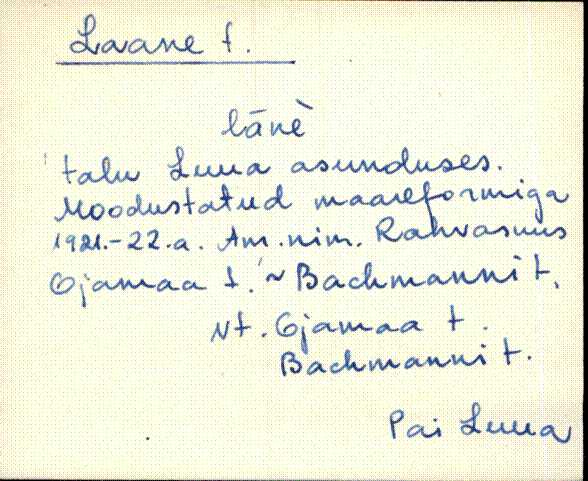 Laane t.
lānè
talu Luua asunduses.
Moodustatud maareformiga
1921.-22.a. Am.nim. Rahvasuus
Ojamaa t. ~ Bachmanni t.
Vt. Ojamaa t.
Bachmanni t.
Pai Luua